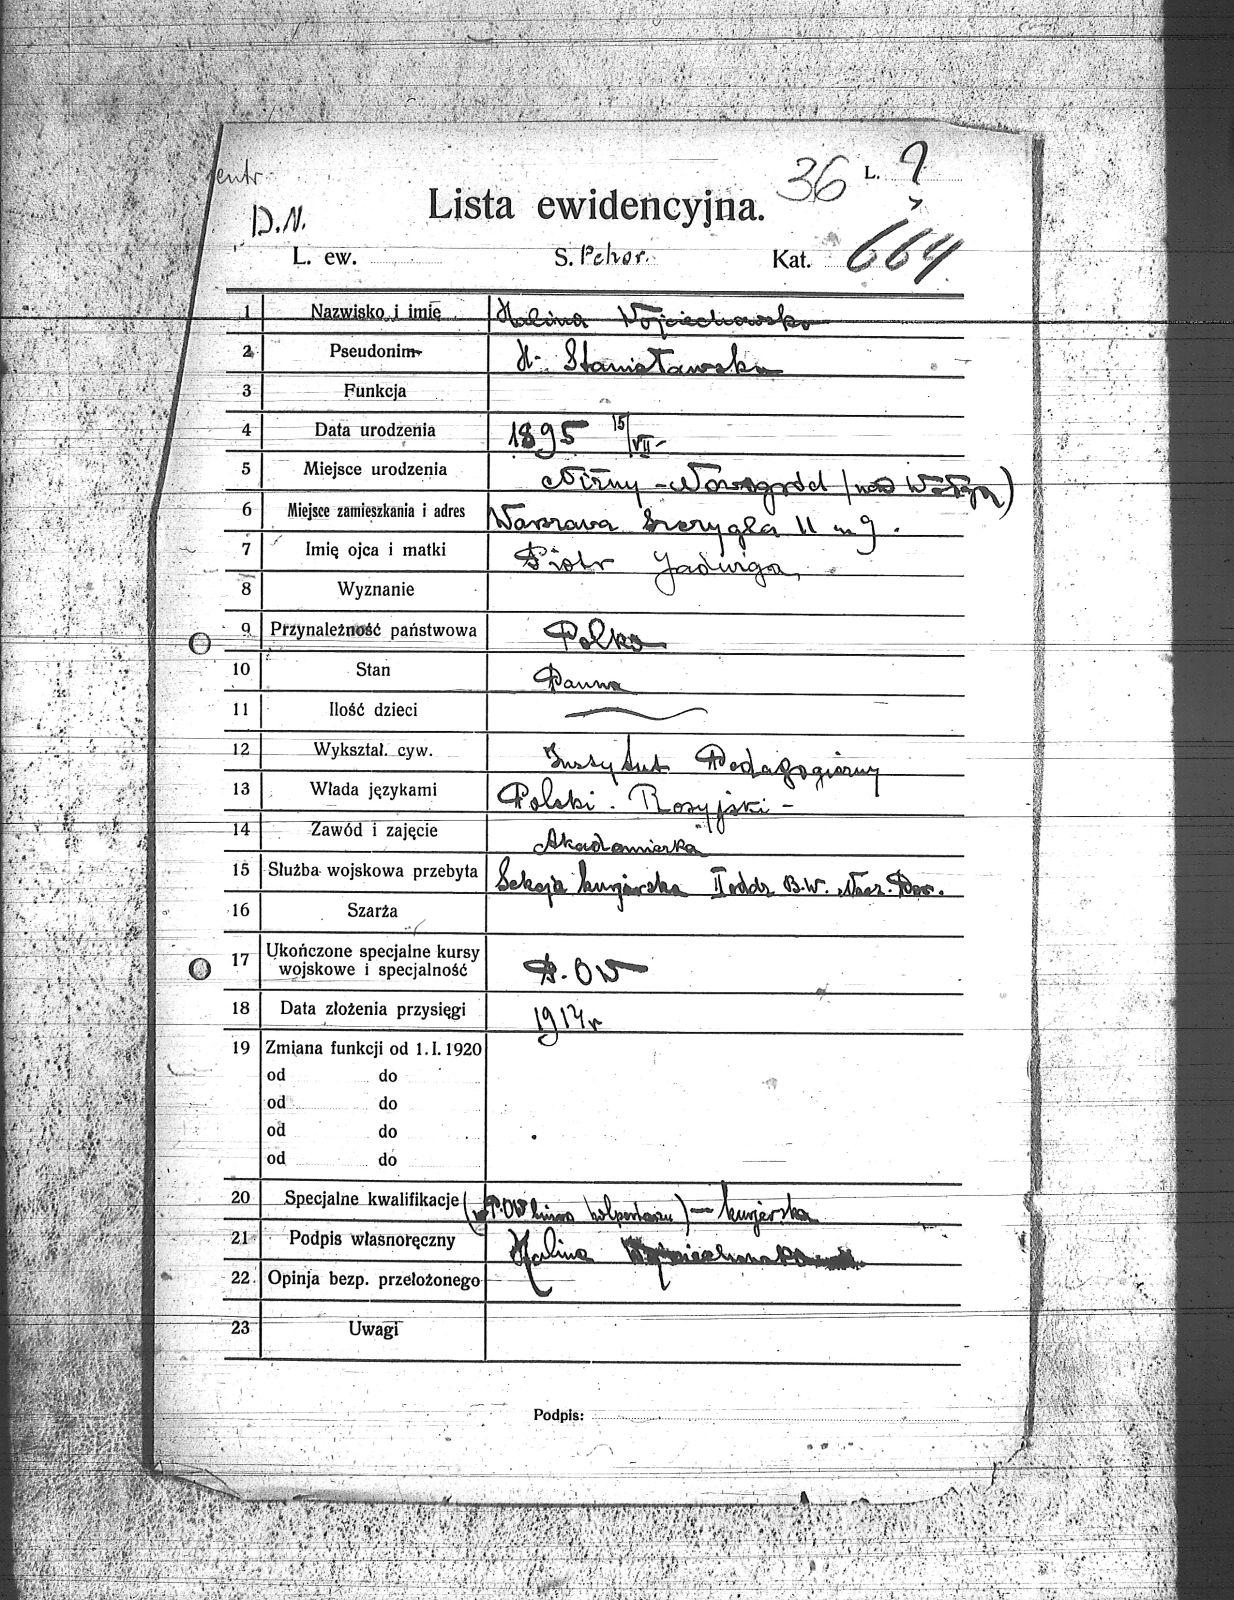 centr
36 L. ?
D.N.
Lista ewidencyjna.
L. ew. S. Pehor. Kat. 664
1 Nazwisko i imię Halina Wojciechowska
2 Pseudonim H. Stanisławska
3 Funkcja
4 Data urodzenia 1895 15/VII-
5 Miejsce urodzenia Niżny-Nowogród (nad Wołgą)
6 Miejsce zamieszkania i adres Warszawa Szczygla 11 m 9.
7 Imię ojca i matki Piotr Jadwiga
8 Wyznanie
9 Przynależność państwowa Polka
10 Stan Panna
11 Ilość dzieci
12 Wykształ. cyw. Instytut Pedagogiczny
13 Włada językami Polski. Rosyjski -
14 Zawód i zajęcie Akademiczka
15 Służba wojskowa przebyta Sekcja kurjerska II oddz B.W. Nacz. Dow.
16 Szarża
17 Ukończone specjalne kursy
wojskowe i specjalność P.OW
18 Data złożenia przysięgi 1917 r
19 Zmiana funkcji od 1. I. 1920
od do
od do
od do
od do
20 Specjalne kwalifikacje (w P.OW kolportażu) - kurjerska
21 Podpis własnoręczny Halina Wojciechowska
22 Opinja bezp. przełożonego
23 Uwagi
Podpis: